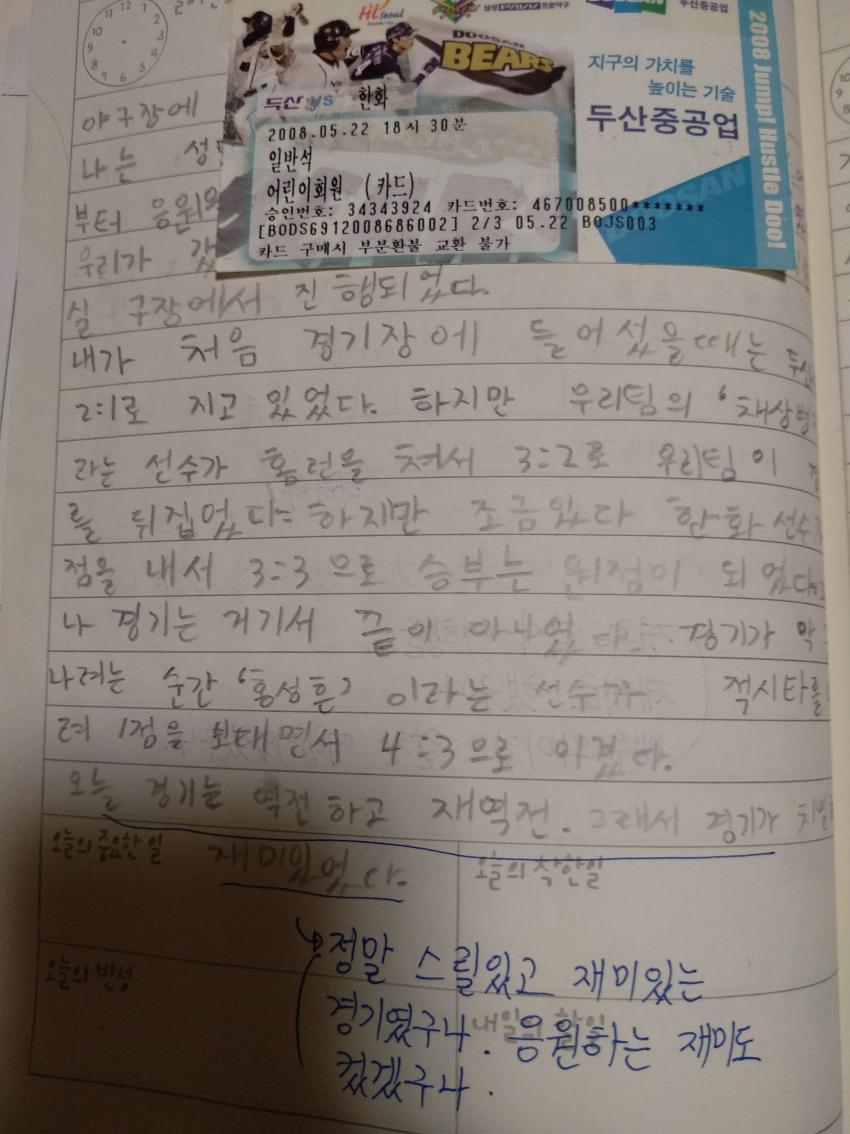 12 1 2 3 4 5 6 7 8 9 10 11
Hi Seoul
삼성 PAVV 프로야구
DOOSAN
BEARS
두산 vs 한화
2008.05.22 18시 30분
일반석
어린이회원 (카드)
승인번호: 34343924 카드번호: 467008500*******
[BODS6912008686002] 2/3 05.22 BOJS003
카드 구매시 부분환불 교환 불가
DOOSAN 두산중공업
지구의 가치를
높이는 기술
두산중공업
DOOSAN
2008 Jump! Hustle Doo!
야구장에
나는
부터 응원
우리가
실 구장에서 진행되었다.
내가 처음 경기장에 들어섰을때는
2:1로 지고 있었다. 하지만 우리팀의 '채상병
라는 선수가 홈런을 쳐서 3:2로 우리팀이
를 뒤집었다. 하지만 조금있다 한화 선수
점을 내서 3:3으로 승부는 원점이 되었다.
나 경기는 거기서 끝이 아니었다. 경기가 막
나려는 순간 '홍성흔' 이라는 선수가 적시타를
려 1점을 보태면서 4:3으로 이겼다.
오늘 경기는 역전하고 재역전. 그래서 경기가
재미있었다.
오늘의 중요한 일
오늘의 착한일
오늘의 반성
내일의 할일
정말 스릴있고 재미있는
경기였구나. 응원하는 재미도
컸겠구나.